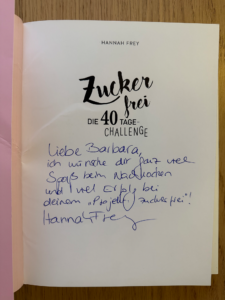 HANNAH FREY
Zucker
frei
DIE 40 TAGE-
CHALLENGE
Liebe Barbara,
ich wünsche dir ganz viel
Spaß beim Nachkochen
und viel Erfolg bei
deinem „Projekt: Zuckerfrei"!
Hannah Frey